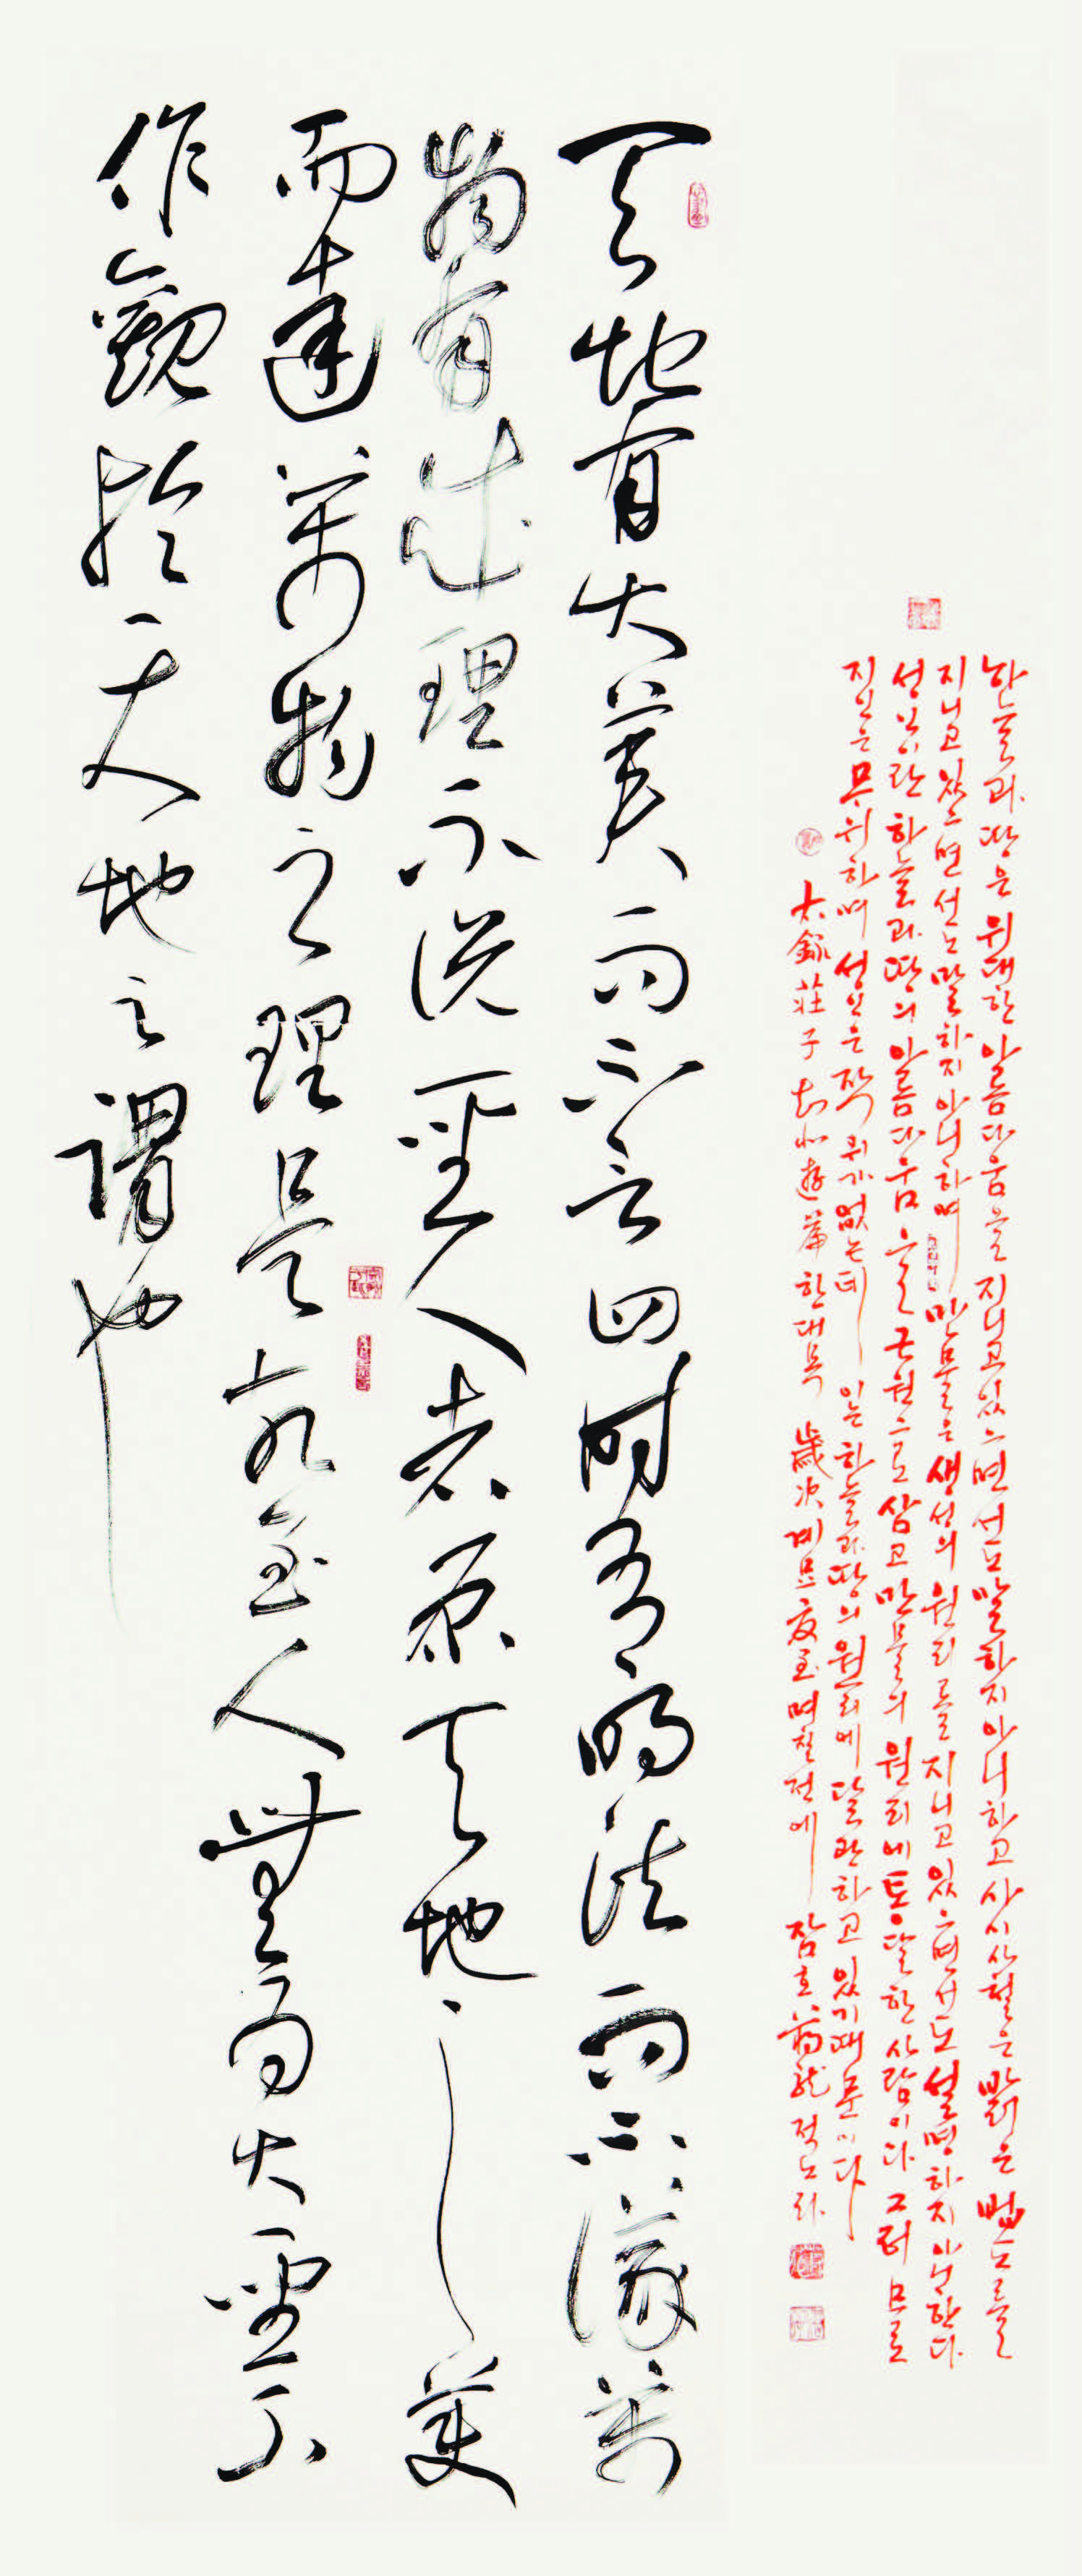 하늘과 땅은 위대한 아름다움을 지니고 있으면서도 말하지 아니하고 사시사철은 밝은 법도를
지니고 있으면서도 말하지 아니하며 만물은 생성의 원리를 지니고 있으면서도 설명하지 아니한다
성인이란 하늘과 땅의 아름다움을 근원으로 삼고 만물의 원리에 통달한 사람이다 그러므로
지인은 무위하며 성인은 작위가 없는데 이는 하늘과 땅의 원리에 달관하고 있기 때문이다
右錄莊子知北遊篇 한 대목 歲次계묘夏至 며칠전에 적노라
天地有大美而不言四時有明法而不議萬
物有成理不說聖人者原天地之美
而達萬物之理是故至人無為大聖不
作觀於天地之謂也